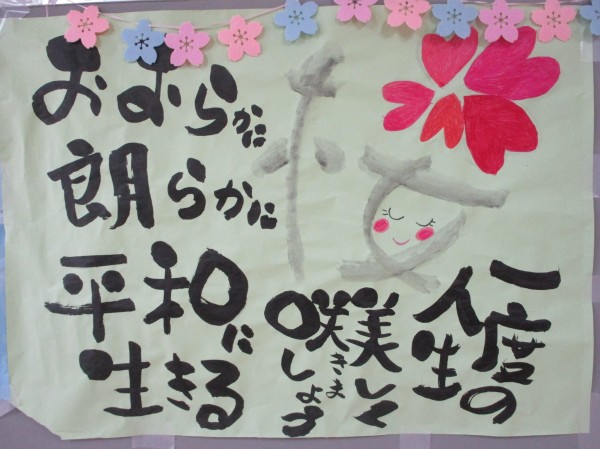 桜
おおらかに
朗らかに
平和に
生きる
一度の
人生
美しく
咲きま
しょう